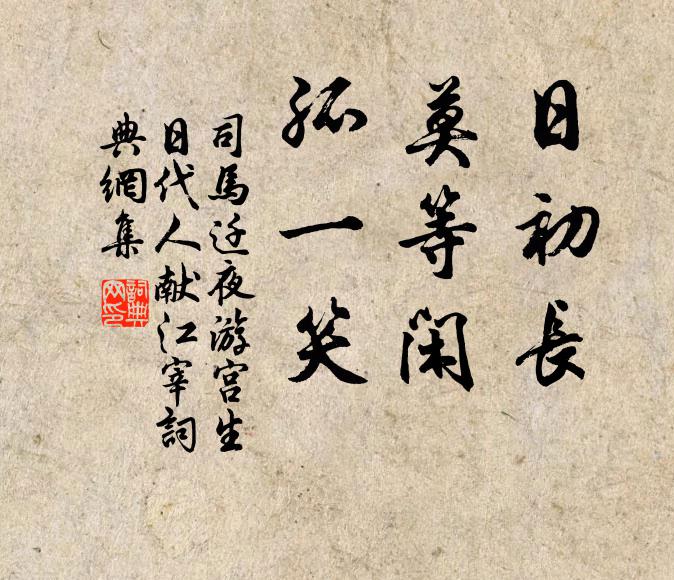 日初長
莫等閑
孤一笑
司馬迁夜游宫生
日代人献江宰詞
典網集
詞典
网印